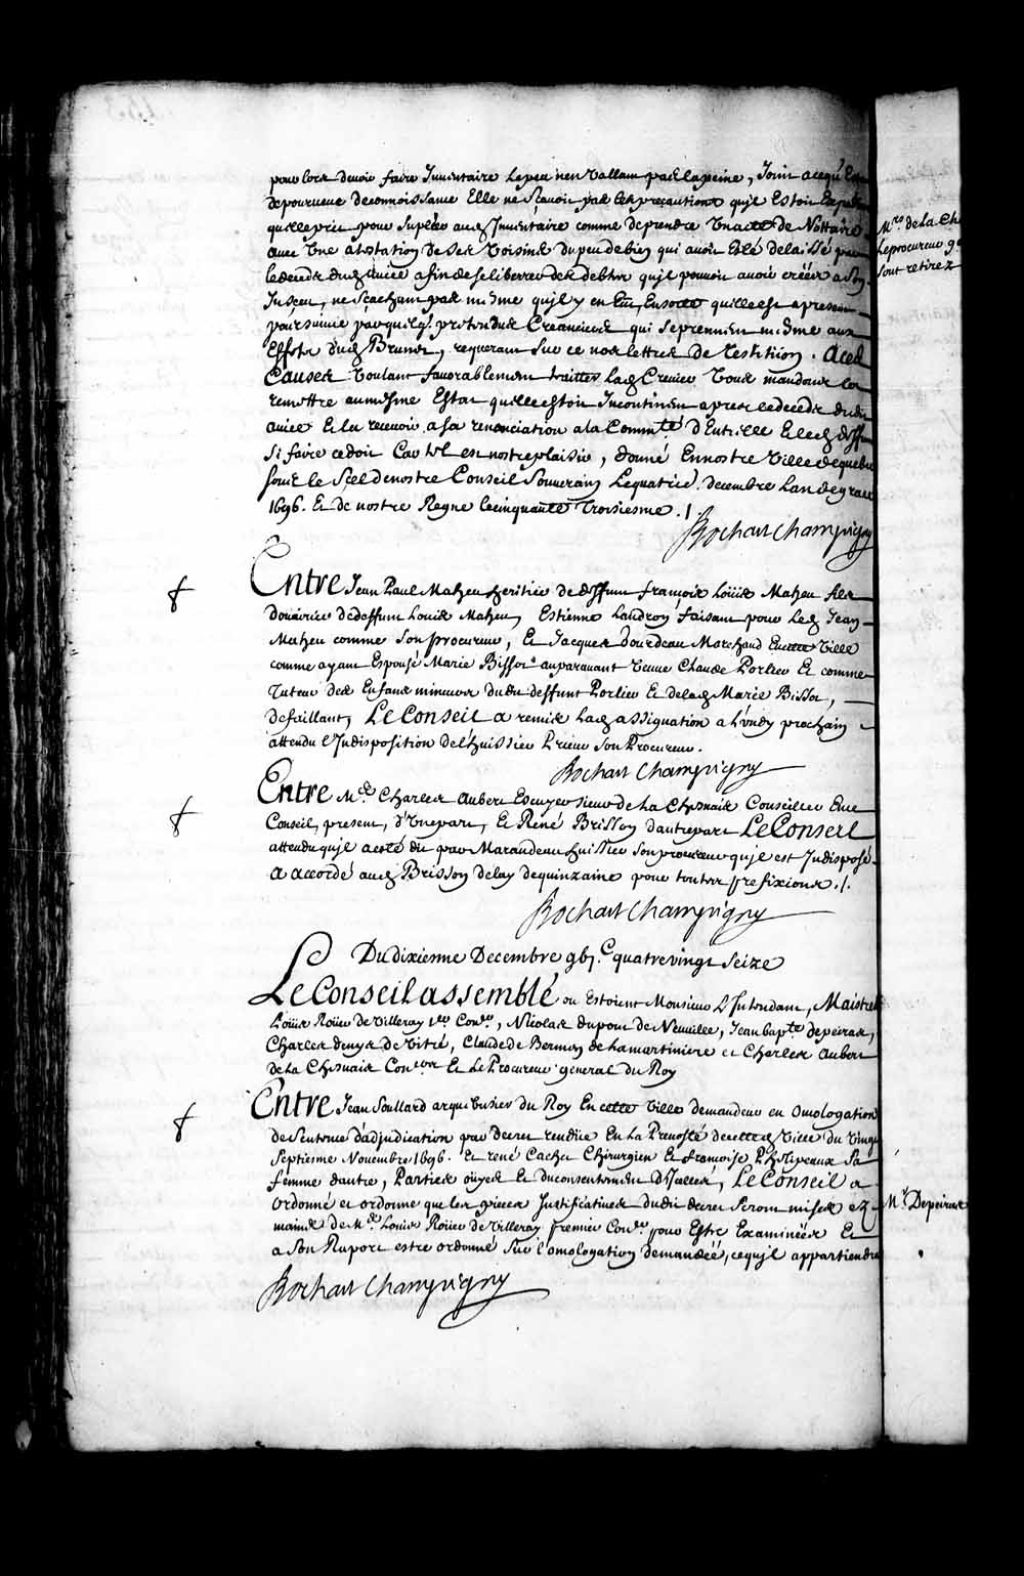 pour lors devoir faire Inventaire le peu n'en vallant pas la peine, Joint a ce qu'Estant
depourveue de connoissance Elle ne sçavoit pas les precautions qu'il Estoit
qu'elle prit pour supleer aud Inventaire comme de prendre Un acte de Nottaire
avec Une atestation de ses Voisins du peu de bien qui avoit Esté delaissé par
le deceds dud afin de se liberrer des debtes qu'il pouvoit avoir créés a son
Insceu, ne sçachant pas mesme qu'il y en Eut, En sorte quelle est a present
poursuivie par quelqs. pretendus Creanciers qui se prennent mesme aux
Effets dud Brunet, requerant sur ce nos lettres de restition. A ces
Causes Voulant favorablement traitter lad Crevier Vous mandons la
remettre au mesme Estat quelle estoit Incontinent apres le deceds dudit
Et la recevoir a sa renonciation a la Commté. d'Entr'elle Et led deffunt
Si faire ce doit Car tel est nostre plaisir, donné En nostre Ville de quebec
sous le Scel de nostre Conseil Souverain Le quatrie. decembre Lan de grace
1696. Et de nostre Regne le cinquante Troisiesme ./
Bochart Champigny
Mrs. de la Ch
Le procureur g
sont retirez
Entre Jean Paul Maheu heritier de deffunt françois Loüis Maheu
de deffunt Louis Maheu, Estienne Landron faisant pour led Jean
Maheu comme Son procureur, Et Jacques Bourdeau Marchand En cette Ville
comme ayant Espousé Marie Bissot auparavant Veuve Claude Porlier Et comme
Tuteur des Enfans mineurs dudit deffunt Porlier Et de lad Marie Bissot,
defaillant, Le Conseil a remis lad assignation a Lundy prochain
attendu l'Indisposition de l'huissier Prieur Son Procureur.
Bochart Champigny
Entre Me. Charles Aubert Escuyer Sieur de la Chesnaie Conseiller En ce
Conseil, present, d'Une part, Et René Brisson d'autre part Le Conseil
attendu qu'il a esté dit par Marandeau huissier Son procureur qu'il est Indisposé
a accordé aud Brisson delay de quinzaine pour toutes prefixions ./.
Bochart Champigny
Du dixienme Decembre gbjc. quatrevingt Seize
Le Conseil assemblé ou Estoient Monsieur L'Intendant, Maistres
Loüis Roüer de Villeray 1er. Coner., Nicolas dupont de Neuville, Jean bapte. depeiras,
Charles denys de Vitré, Claude de Bermen de la martiniere et Charles Aubert
de la Chesnaie Coners. Et Le Procureur general du Roy
Entre Jean Soullard arquebusier du Roy En cette Ville demandeur en omologation
de Sentence d'adjudication par decret rendüe En La Prevosté de cette Ville du Vingt
Septiesme Novembre 1696. Et rené Cachet Chirurgien Et françoise Phelipeaux Sa
femme d'autre, Parties oüyes Et du consentement d'Icelles, Le Conseil a
ordonné et ordonne que les pieces Justificatives dudit decret Seront mises ez
mains de Me. Loüis Roüer de Villeray premier Coner. pour Estre Examinées Et
a Son Raport estre ordonné Sur l'omologation demandée, ce qu'il appartiendra
Mr. Depeiras
Bochart Champigny